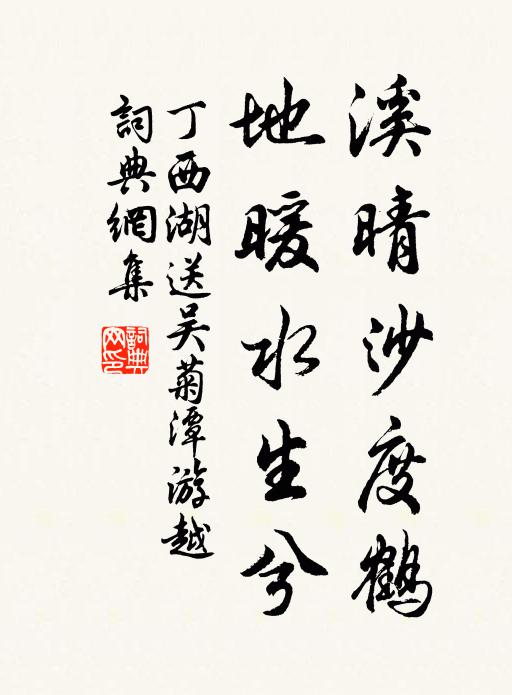 溪晴沙度鶴
地暖水生兮
丁西湖送吴菊潭游越
詞典網集
詞典網印